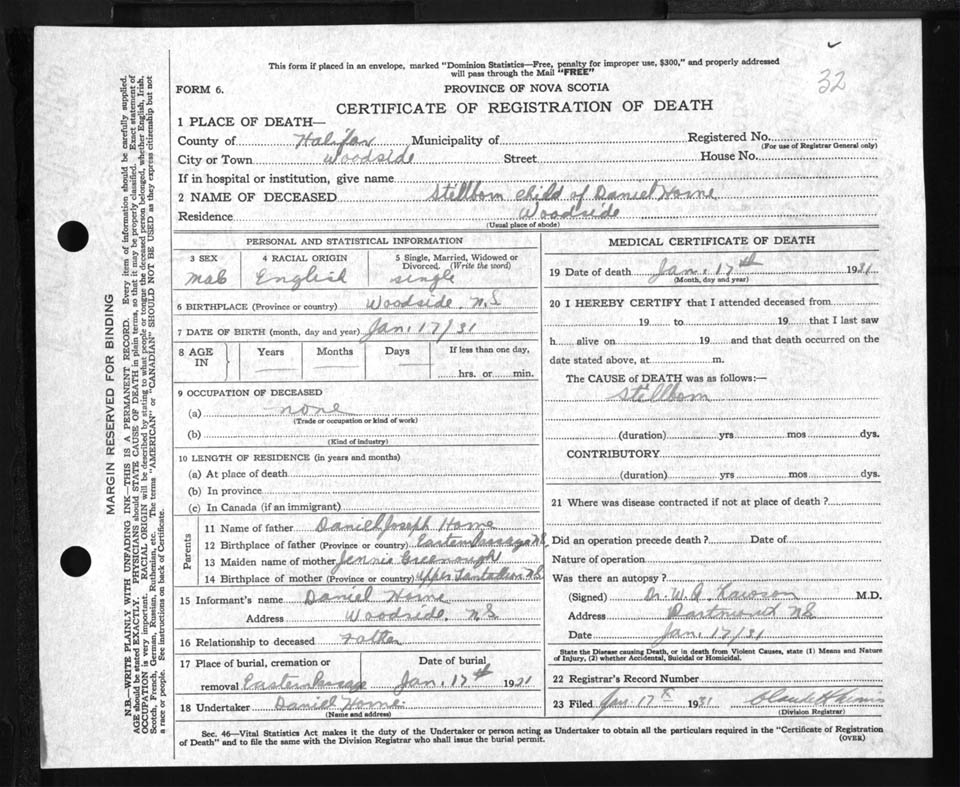 32
This form if placed in an envelope, marked "Dominion Statistics—Free, penalty for improper use, $300," and properly addressed
will pass through the Mail "FREE"
FORM 6.
PROVINCE OF NOVA SCOTIA
CERTIFICATE OF REGISTRATION OF DEATH
1 PLACE OF DEATH—
County of Halifax Municipality of Registered No.
(For use of Registrar General only)
City or Town Woodside Street House No.
If in hospital or institution, give name
2 NAME OF DECEASED Stillborn child of Daniel Horne
Residence Woodside
(Usual place of abode)
PERSONAL AND STATISTICAL INFORMATION
3 SEX 4 RACIAL ORIGIN 5 Single, Married, Widowed or
Divorced. (Write the word)
Male English single
6 BIRTHPLACE (Province or country) Woodside N.S
7 DATE OF BIRTH (month, day and year) Jan. 17/31
8 AGE IN Years Months Days If less than one day,
hrs. or min.
9 OCCUPATION OF DECEASED
(a) none
(Trade or occupation or kind of work)
(b)
(Kind of industry)
10 LENGTH OF RESIDENCE (in years and months)
(a) At place of death
(b) In province
(c) In Canada (if an immigrant)
Parents
11 Name of father Daniel Joseph Horne
12 Birthplace of father (Province or country) Eastern Passage N.S.
13 Maiden name of mother Jennie Greenough
14 Birthplace of mother (Province or country) Upper Tantallon N.S
15 Informant's name Daniel Horne
Address Woodside. N.S
16 Relationship to deceased Father
17 Place of burial, cremation or Date of burial
removal Eastern Passage Jan. 17th 1931
18 Undertaker Daniel Horne.
(Name and address)
MEDICAL CERTIFICATE OF DEATH
19 Date of death Jan. 17th 1931
(Month, day and year)
20 I HEREBY CERTIFY that I attended deceased from
19 to 19 that I last saw
h alive on 19 and that death occurred on the
date stated above, at m.
The CAUSE of DEATH was as follows:—
Stillborn
(duration) yrs mos dys.
CONTRIBUTORY
(duration) yrs mos dys.
21 Where was disease contracted if not at place of death?
Did an operation precede death? Date of
Nature of operation
Was there an autopsy?
(Signed) Dr. W. A. M.D.
Address Dartmouth N.S
Date Jan. 17/31
State the Disease causing Death, or in death from Violent Causes, state (1) Means and Nature
of Injury, (2) whether Accidental, Suicidal or Homicidal.
22 Registrar's Record Number
23 Filed Jan. 17th 1931
(Division Registrar)
Sec. 46—Vital Statistics Act makes it the duty of the Undertaker or person acting as Undertaker to obtain all the particulars required in the "Certificate of Registration
of Death" and to file the same with the Division Registrar who shall issue the burial permit. (OVER)
MARGIN RESERVED FOR BINDING
N.B.—WRITE PLAINLY WITH UNFADING INK—THIS IS A PERMANENT RECORD. Every item of information should be carefully supplied.
AGE should be stated EXACTLY. PHYSICIANS should STATE CAUSE OF DEATH in plain terms, so that it may be properly classified. Exact statement of
OCCUPATION is very important. RACIAL ORIGIN will be described by stating to what people or tongue the deceased person belonged, whether English, Irish,
Scotch, French, German, Russian, Ruthenian, etc. The terms "AMERICAN" or "CANADIAN" SHOULD NOT BE USED as they express citizenship but not
a race or people. See instructions on back of Certificate.